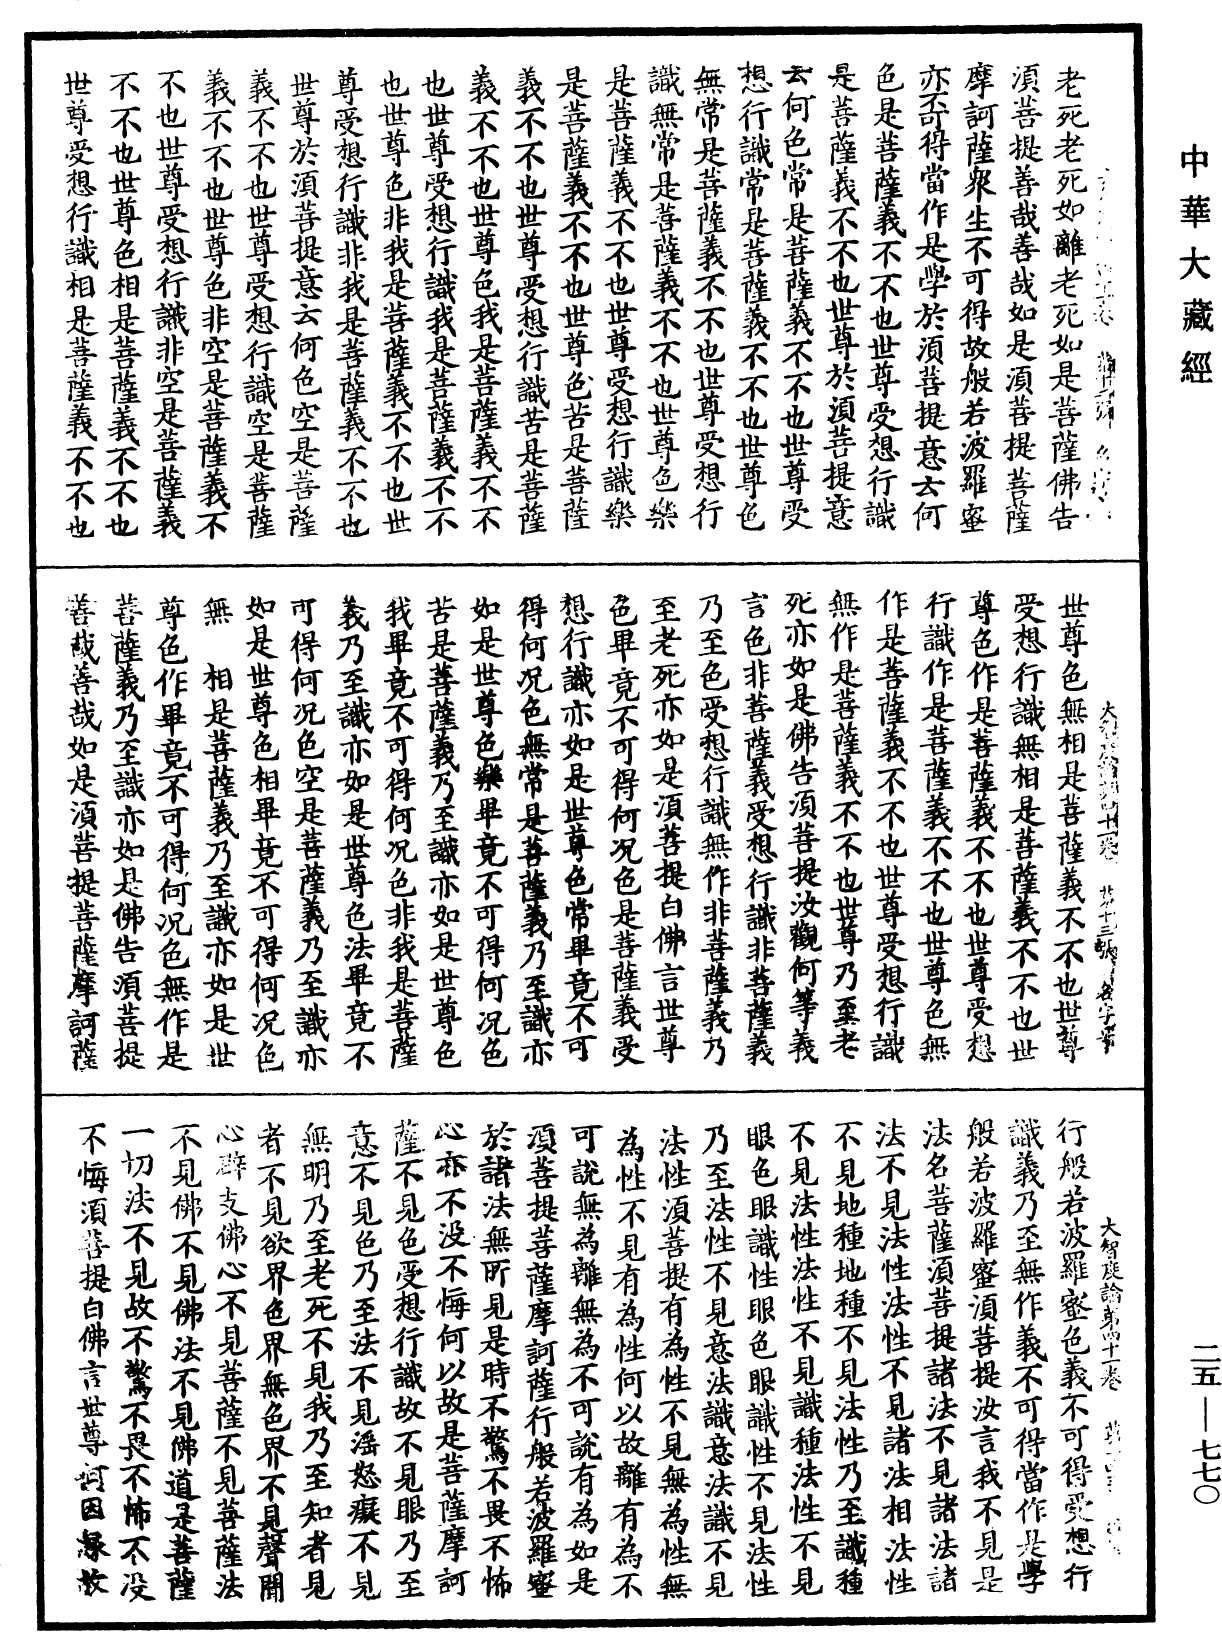 中華大藏經
老死老死如離老死如是菩薩佛告
須菩提善哉善哉如是須菩提菩薩
摩訶薩眾生不可得故般若波羅蜜
亦不可得當作是學於須菩提意云何
色是菩薩義不不也世尊受想行識
是菩薩義不不也世尊於須菩提意
云何色常是菩薩義不不也世尊受
想行識常是菩薩義不不也世尊色
無常是菩薩義不不也世尊受想行
識無常是菩薩義不不也世尊色樂
是菩薩義不不也世尊受想行識樂
是菩薩義不不也世尊色苦是菩薩
義不不也世尊受想行識苦是菩薩
義不不也世尊色我是菩薩義不不
也世尊受想行識我是菩薩義不不
也世尊色非我是菩薩義不不也世
尊受想行識非我是菩薩義不不也
世尊於須菩提意云何色空是菩薩
義不不也世尊受想行識空是菩薩
義不不也世尊色非空是菩薩義不
不也世尊受想行識非空是菩薩義
不不也世尊色相是菩薩義不不也
世尊受想行識相是菩薩義不不也
世尊色無相是菩薩義不不也世尊
受想行識無相是菩薩義不不也世
尊色作是菩薩義不不也世尊受想
行識作是菩薩義不不也世尊色無
作是菩薩義不不也世尊受想行識
無作是菩薩義不不也世尊乃至老
死亦如是佛告須菩提汝觀何等義
言色非菩薩義受想行識非菩薩義
乃至色受想行識無作非菩薩義乃
至老死亦如是須菩提白佛言世尊
色畢竟不可得何況色是菩薩義受
想行識亦如是世尊色常畢竟不可
得何況色無常是菩薩義乃至識亦
如是世尊色樂畢竟不可得何況色
苦是菩薩義乃至識亦如是世尊色
我畢竟不可得何況色非我是菩薩
義乃至識亦如是世尊色法畢竟不
可得何況色空是菩薩義乃至識亦
如是世尊色相畢竟不可得何況色
無 相是菩薩義乃至識亦如是世
尊色作畢竟不可得何況色無作是
菩薩義乃至識亦如是佛告須菩提
善哉善哉如是須菩提菩薩摩訶薩
大智度論第四十一卷
行般若波羅蜜色義不可得受想行
識義乃至無作義不可得當作是學
般若波羅蜜須菩提汝言我不見是
法名菩薩須菩提諸法不見諸法諸
法不見法性法性不見諸法相法性
不見地種地種不見法性乃至識種
不見法性法性不見識種法性不見
眼色眼識性眼色眼識性不見法性
乃至法性不見意法識意法識不見
法性須菩提有為性不見無為性無
為性不見有為性何以故離有為不
可說無為離無為不可說有為如是
須菩提菩薩摩訶薩行般若波羅蜜
於諸法無所見是時不驚不畏不怖
心亦不沒不悔何以故是菩薩摩訶
薩不見色受想行識故不見眼乃至
意不見色乃至法不見婬怒癡不見
無明乃至老死不見我乃至知者見
者不見欲界色界無色界不見聲聞
心辟支佛心不見菩薩不見菩薩法
不見佛不見佛法不見佛道是菩薩
一切法不見故不驚不畏不怖不沒
不悔須菩提白佛言世尊何因緣故
二五—七七〇